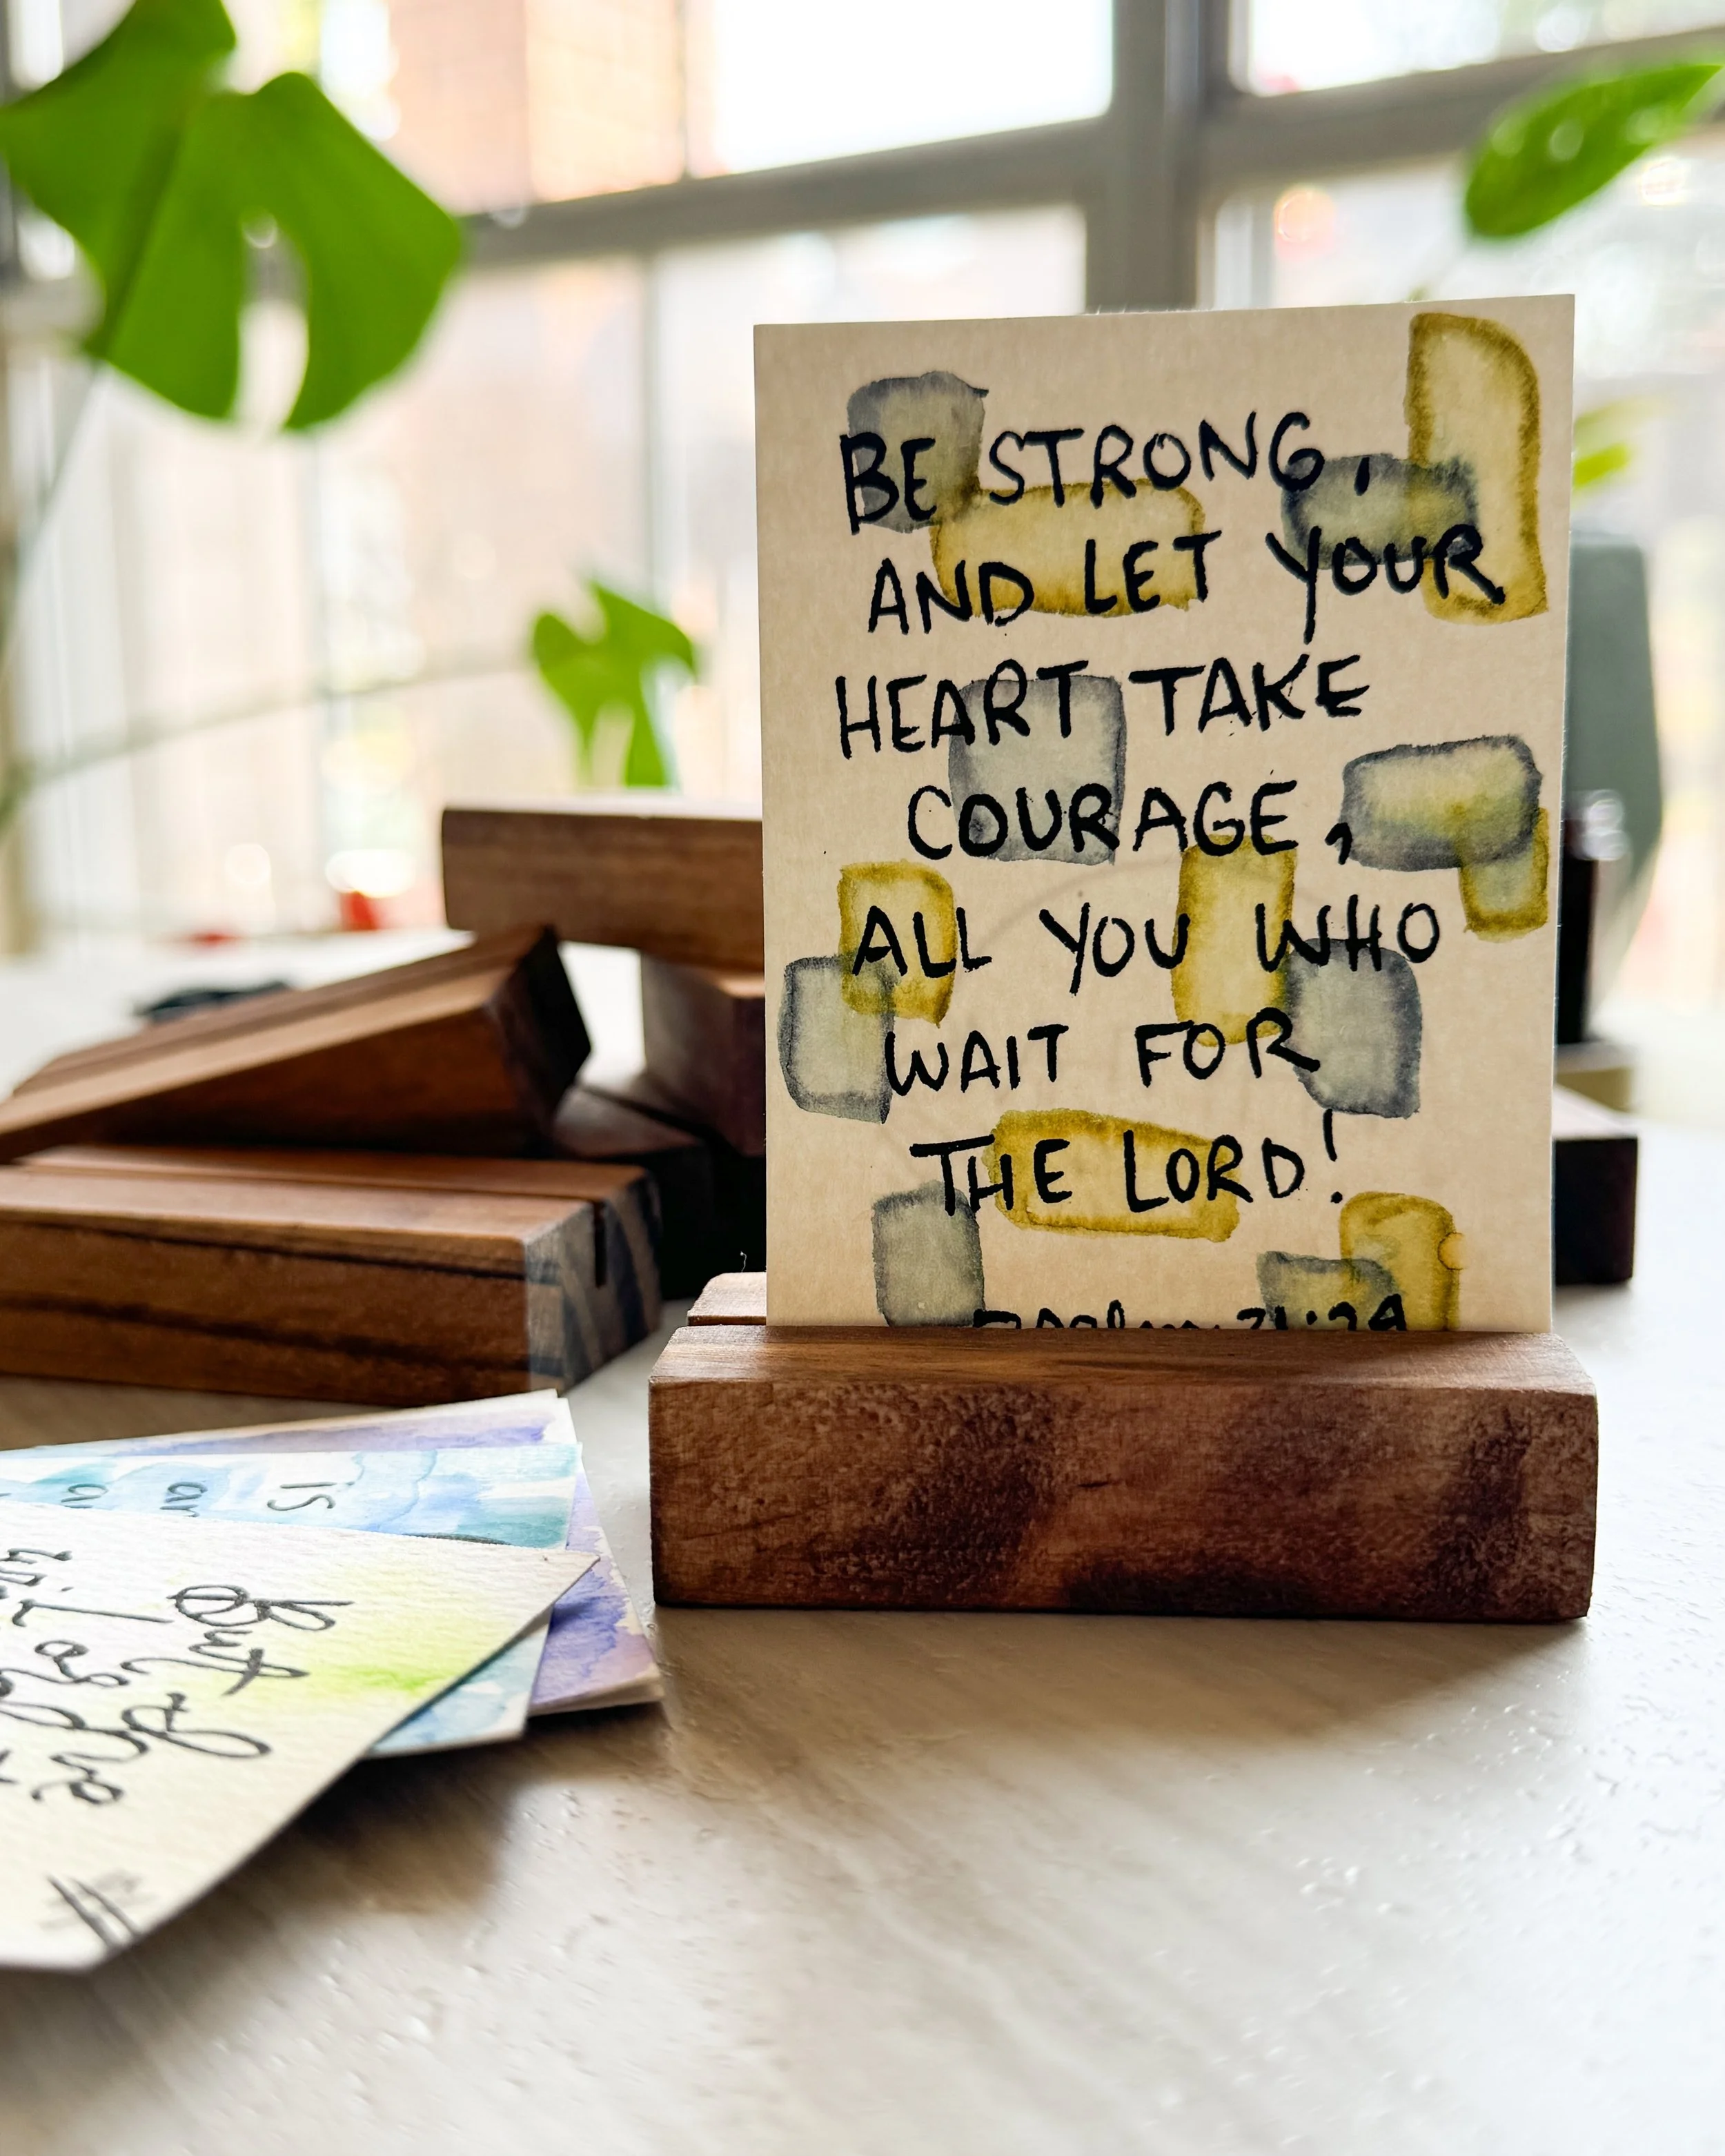 BE STRONG,
AND LET YOUR
HEART TAKE
COURAGE,
ALL YOU WHO
WAIT FOR
THE LORD!
Psalm 31:24
is
But the